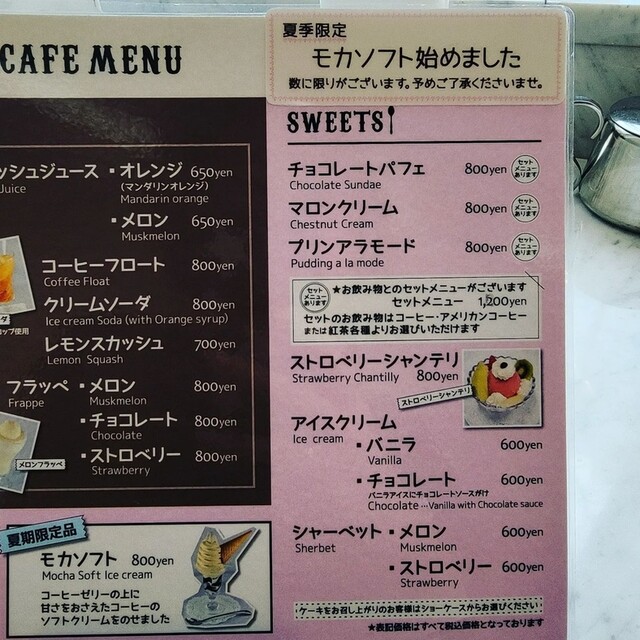 CAFE MENU
ッシュジュース
Juice
・オレンジ 650yen
(マンダリンオレンジ)
Mandarin orange
・メロン 650yen
Muskmelon
コーヒーフロート 800yen
Coffee Float
クリームソーダ 800yen
Ice cream Soda (with Orange syrup)
レモンスカッシュ 700yen
Lemon Squash
フラッペ
Frappe
・メロン 800yen
Muskmelon
・チョコレート 800yen
Chocolate
・ストロベリー 800yen
Strawberry
メロンフラッペ
夏期限定品
モカソフト 800yen
Mocha Soft Ice cream
コーヒーゼリーの上に
甘さをおさえたコーヒーの
ソフトクリームをのせました
夏季限定
モカソフト始めました
数に限りがございます。予めご了承くださいませ。
SWEETS
チョコレートパフェ 800yen セットメニューあります
Chocolate Sundae
マロンクリーム 800yen セットメニューあります
Chestnut Cream
プリンアラモード 800yen セットメニューあります
Pudding a la mode
セットメニューあります
★お飲み物とのセットメニューがございます
セットメニュー 1,200yen
セットのお飲み物はコーヒー・アメリカンコーヒー
または紅茶各種よりお選びいただけます
ストロベリーシャンテリ
Strawberry Chantilly 800yen
ストロベリーシャンテリ
アイスクリーム
Ice cream
・バニラ 600yen
Vanilla
・チョコレート 600yen
バニラアイスにチョコレートソースがけ
Chocolate …Vanilla with Chocolate sauce
シャーベット
Sherbet
・メロン 600yen
Muskmelon
・ストロベリー 600yen
Strawberry
ケーキをお召し上がりのお客様はショーケースからお選びください
★表記価格はすべて税込価格となっております